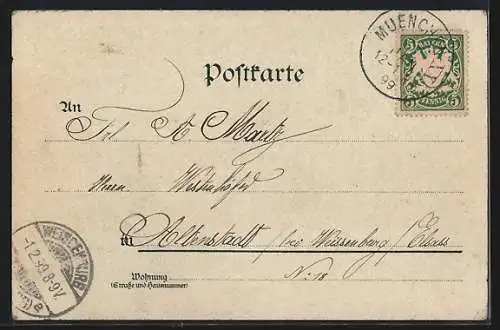 MUENCH
12-
99
BAYERN
5 5
PFENNIG
5 5
Postkarte
An
Frl. A. Mautz
Herrn
in Altenstadt / bei Weissenburg / Elsass
No. 18
Wohnung
(Straße und Hausnummer)
WEISSENBURG
-1.2.99.8-9V.